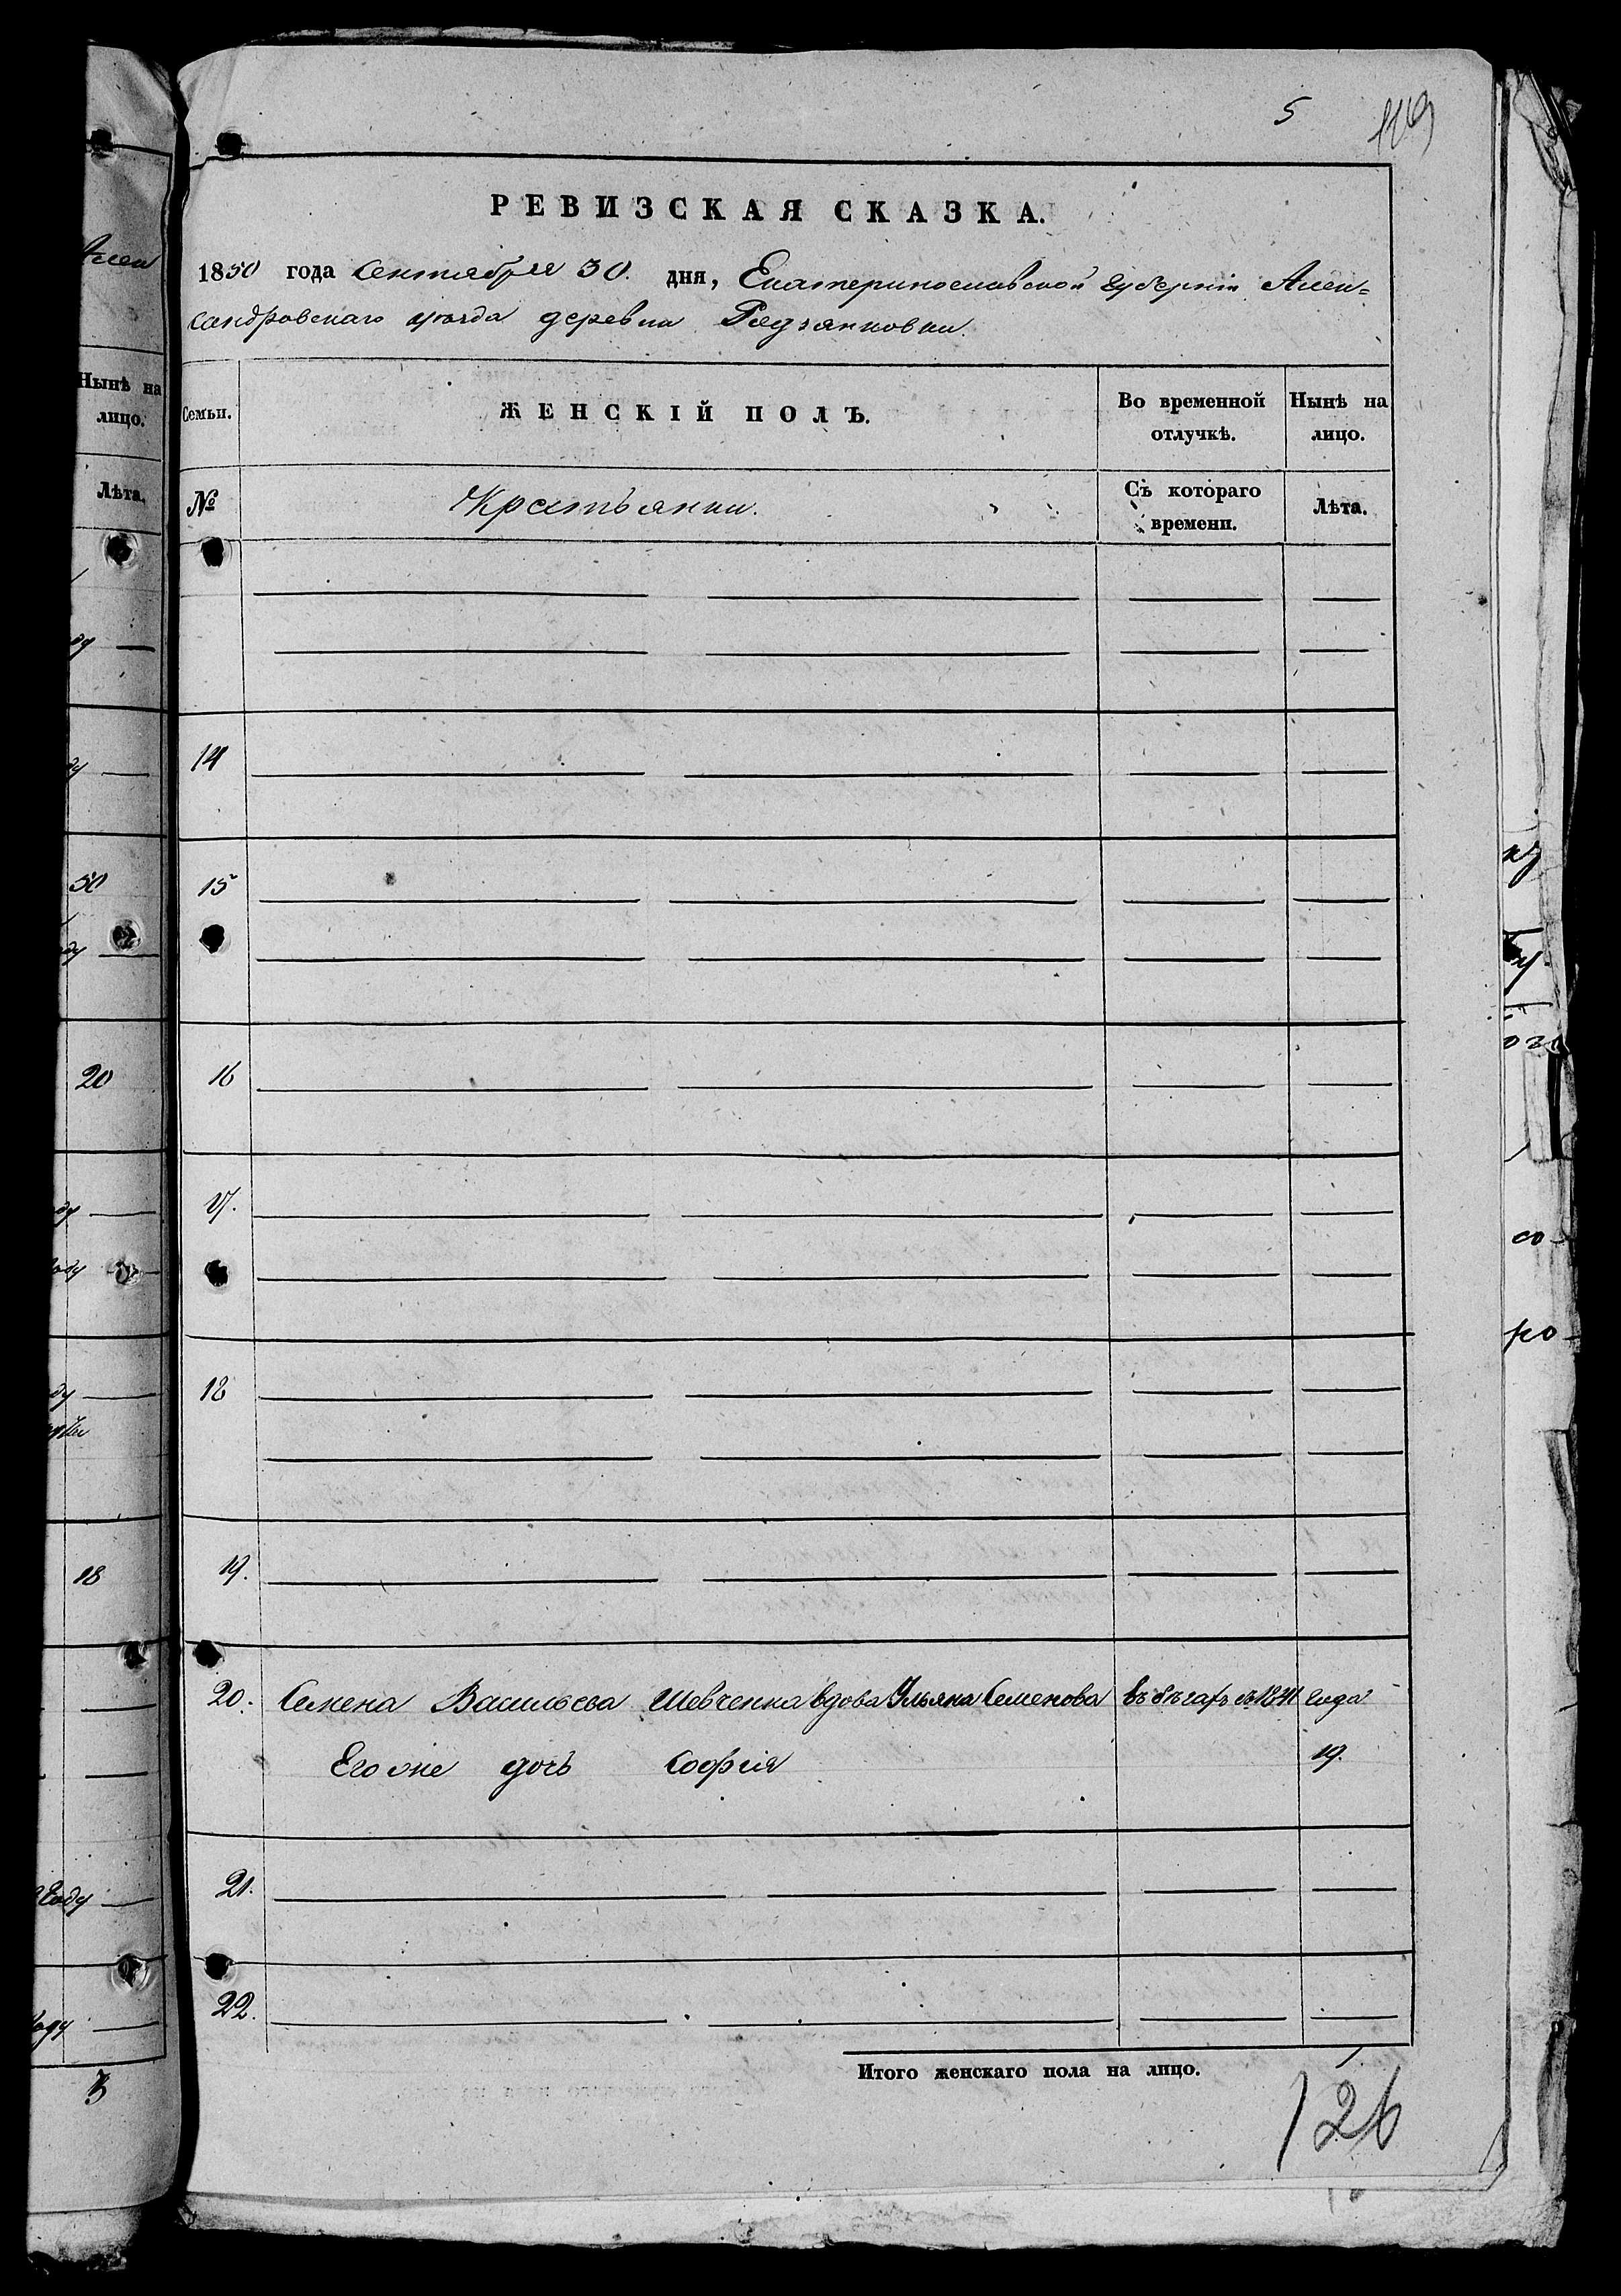 5
РЕВИЗСКАЯ СКАЗКА.
1850 года Сентября 30. дня, Екатеринославской Губерніи Алек=
сандровскаго уѣзда деревни Рядзянковки.
Семьи.
ЖЕНСКІЙ ПОЛЪ.
Во временной отлучкѣ.
Нынѣ на лицо.
№
Крестьянки.
Съ котораго времени.
Лѣта.
14
15
16
17.
18
19.
20. Семена Васильева Шевченка вдова Ульяна Семенова въ бѣгахъ съ 1841 года
Его же дочь Софія 19.
21.
22.
Итого женскаго пола на лицо.
1
126
Алек
Нынѣ на
лицо.
Лѣта.
50
20
18
Году
3
со-
ро-